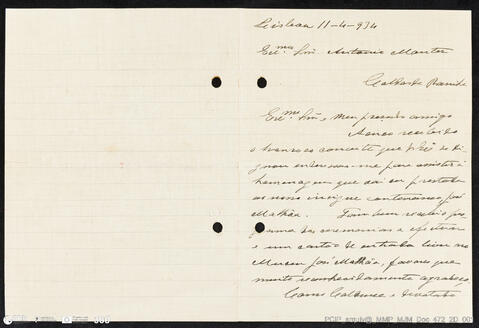 Lisboa 11-4-934
Exmo Snr. Antonio Montez
Caldas da Rainha
Exmo Snr. e meu presado amigo
Acuso recebido
o honroso convite que V. Exª se dignou
enviar-me para assistir á
homenagem que vai ser prestada
ao nosso insigne conterraneo José
Malhôa. Tambem recebi o pro
grama das ceremonias a efectuar
e um cartão de entrada livre no
Museu José Malhôa, favores que
muito reconhecidamente agradeço.
Como Caldense e devotado
PCIP arquiv@ MMP MJM Doc 472 2D 00